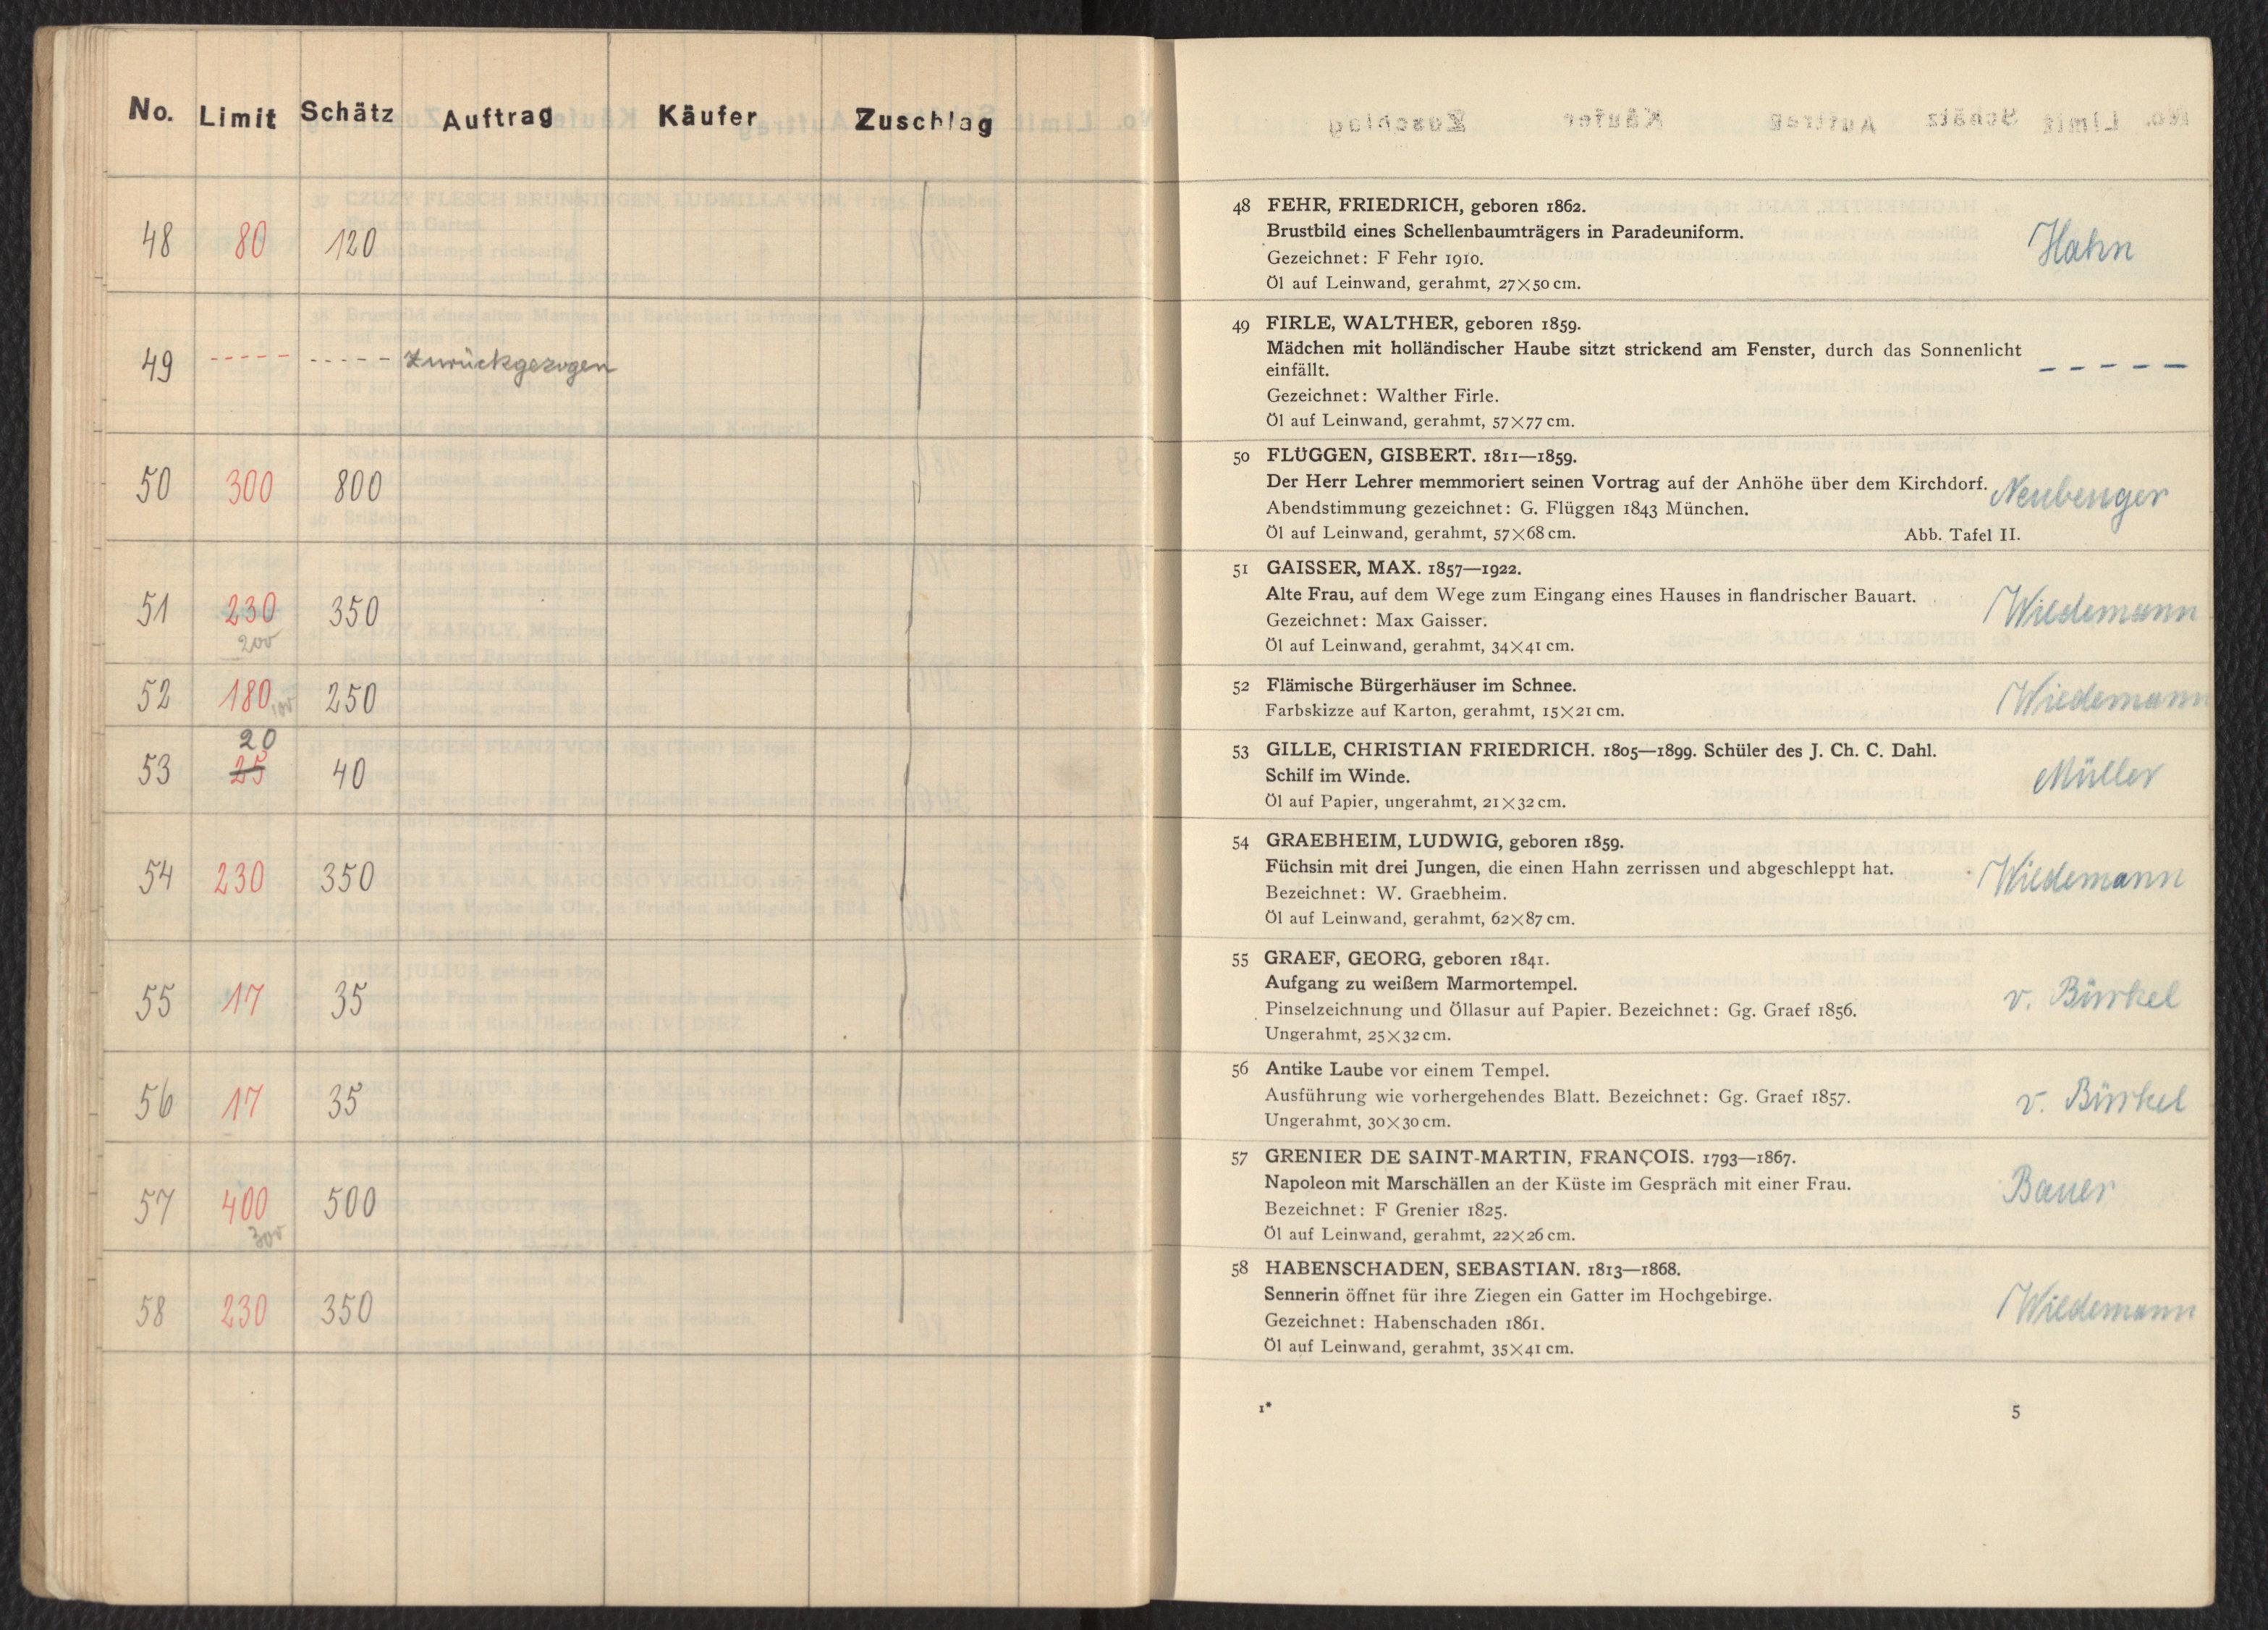 No. Limit Schätz Auftrag Käufer Zuschlag
48 80 120
49 ----- ----- Zurückgezogen
50 300 800
51 230 350
200
52 180 100 250
20
53 25 40
54 230 350
55 17 35
56 17 35
57 400 500
300
58 230 350
48 FEHR, FRIEDRICH, geboren 1862.
Brustbild eines Schellenbaumträgers in Paradeuniform.
Hahn
Gezeichnet: F Fehr 1910.
Öl auf Leinwand, gerahmt, 27×50 cm.
49 FIRLE, WALTHER, geboren 1859.
Mädchen mit holländischer Haube sitzt strickend am Fenster, durch das Sonnenlicht
einfällt. -----
Gezeichnet: Walther Firle.
Öl auf Leinwand, gerahmt, 57×77 cm.
50 FLÜGGEN, GISBERT. 1811—1859.
Der Herr Lehrer memmoriert seinen Vortrag auf der Anhöhe über dem Kirchdorf.
Abendstimmung gezeichnet: G. Flüggen 1843 München.
Öl auf Leinwand, gerahmt, 57×68 cm. Abb. Tafel II.
51 GAISSER, MAX. 1857—1922.
Alte Frau, auf dem Wege zum Eingang eines Hauses in flandrischer Bauart.
Wiedemann
Gezeichnet: Max Gaisser.
Öl auf Leinwand, gerahmt, 34×41 cm.
52 Flämische Bürgerhäuser im Schnee.
Wiedemann
Farbskizze auf Karton, gerahmt, 15×21 cm.
53 GILLE, CHRISTIAN FRIEDRICH. 1805—1899. Schüler des J. Ch. C. Dahl.
Schilf im Winde.
Müller
Öl auf Papier, ungerahmt, 21×32 cm.
54 GRAEBHEIM, LUDWIG, geboren 1859.
Füchsin mit drei Jungen, die einen Hahn zerrissen und abgeschleppt hat.
Wiedemann
Bezeichnet: W. Graebheim.
Öl auf Leinwand, gerahmt, 62×87 cm.
55 GRAEF, GEORG, geboren 1841.
Aufgang zu weißem Marmortempel.
v. Bürkel
Pinselzeichnung und Öllasur auf Papier. Bezeichnet: Gg. Graef 1856.
Ungerahmt, 25×32 cm.
56 Antike Laube vor einem Tempel.
v. Bürkel
Ausführung wie vorhergehendes Blatt. Bezeichnet: Gg. Graef 1857.
Ungerahmt, 30×30 cm.
57 GRENIER DE SAINT-MARTIN, FRANÇOIS. 1793—1867.
Napoleon mit Marschällen an der Küste im Gespräch mit einer Frau.
Bauer
Bezeichnet: F Grenier 1825.
Öl auf Leinwand, gerahmt, 22×26 cm.
58 HABENSCHADEN, SEBASTIAN. 1813—1868.
Sennerin öffnet für ihre Ziegen ein Gatter im Hochgebirge.
Wiedemann
Gezeichnet: Habenschaden 1861.
Öl auf Leinwand, gerahmt, 35×41 cm.
1* 5